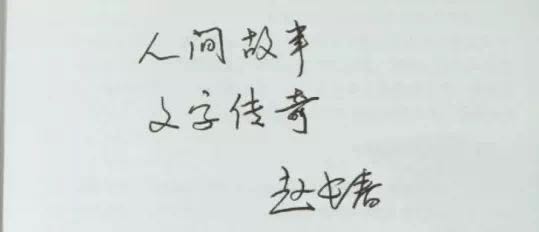 人间故事
文字传奇
赵长春